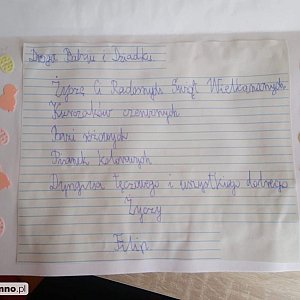 Droga Babciu i Dziadku
Życzę Ci Radosnych Świąt Wielkanocnych
Kurczaków czerwonych
Bazi różowych
Pisanek kolorowych
Dyngusa lejącego i wszystkiego dobrego
Życzy
Filip
nno.pl